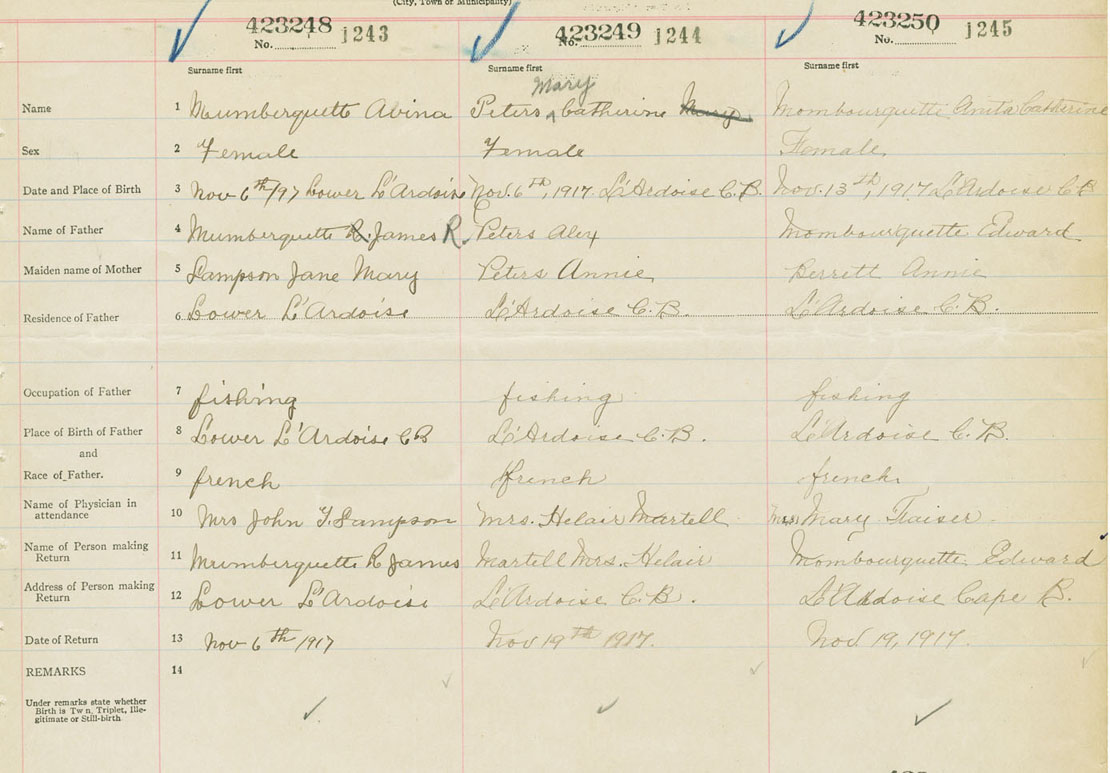 (City, Town or Municipality)
423248 1243 423249 1244 423250 1245
No. No. No.
Surname first Surname first Surname first
Mary
Name 1 Mumberquette Avina Peters ^ Catherine Mary Mombourquette Anita Catherine
Sex 2 Female Female Female
Date and Place of Birth 3 Nov 6th/97 Lower L'Ardoise Nov. 6th, 1917 L'Ardoise C.B. Nov. 13th, 1917 L'Ardoise C B
Name of Father 4 Mumberquette R. James R. Peters Alex Mombourquette Edward
Maiden name of Mother 5 Sampson Jane Mary Peters Annie Berrett Annie
Residence of Father 6 Lower L'Ardoise L'Ardoise C.B. L'Ardoise C.B.
Occupation of Father 7 fishing fishing fishing
Place of Birth of Father 8 Lower L'Ardoise CB L'Ardoise C.B. L'Ardoise C.B.
and
Race of Father. 9 french french french
Name of Physician in
attendance 10 Mrs John T. Sampson Mrs. Helair Martell Mrs. Mary Fraiser
Name of Person making
Return 11 Mumberquette R James Martell Mrs. Helair Mombourquette Edward
Address of Person making
Return 12 Lower L'Ardoise L'Ardoise C.B. L'Ardoise Cape B.
Date of Return 13 Nov 6th/1917 Nov 19th 1917. Nov. 19, 1917.
REMARKS 14
Under remarks state whether
Birth is Tw n, Triplet, Ille-
gitimate or Still-birth